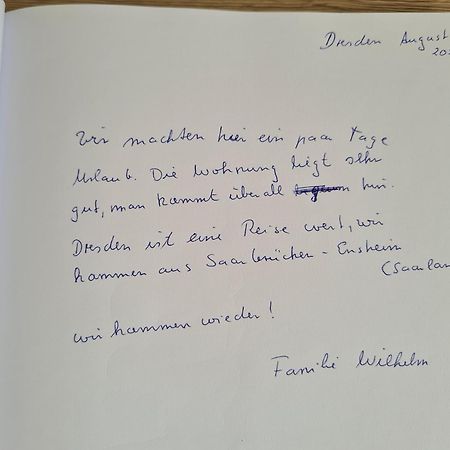 Dresden August
202
Wir machten hier ein paar Tage
Urlaub. Die Wohnung liegt sehr
gut, man kommt überall hin.
Dresden ist eine Reise wert, wir
kommen aus Saarbrücken - Ensheim
(Saarlan
wir kommen wieder!
Familie Wilhelm